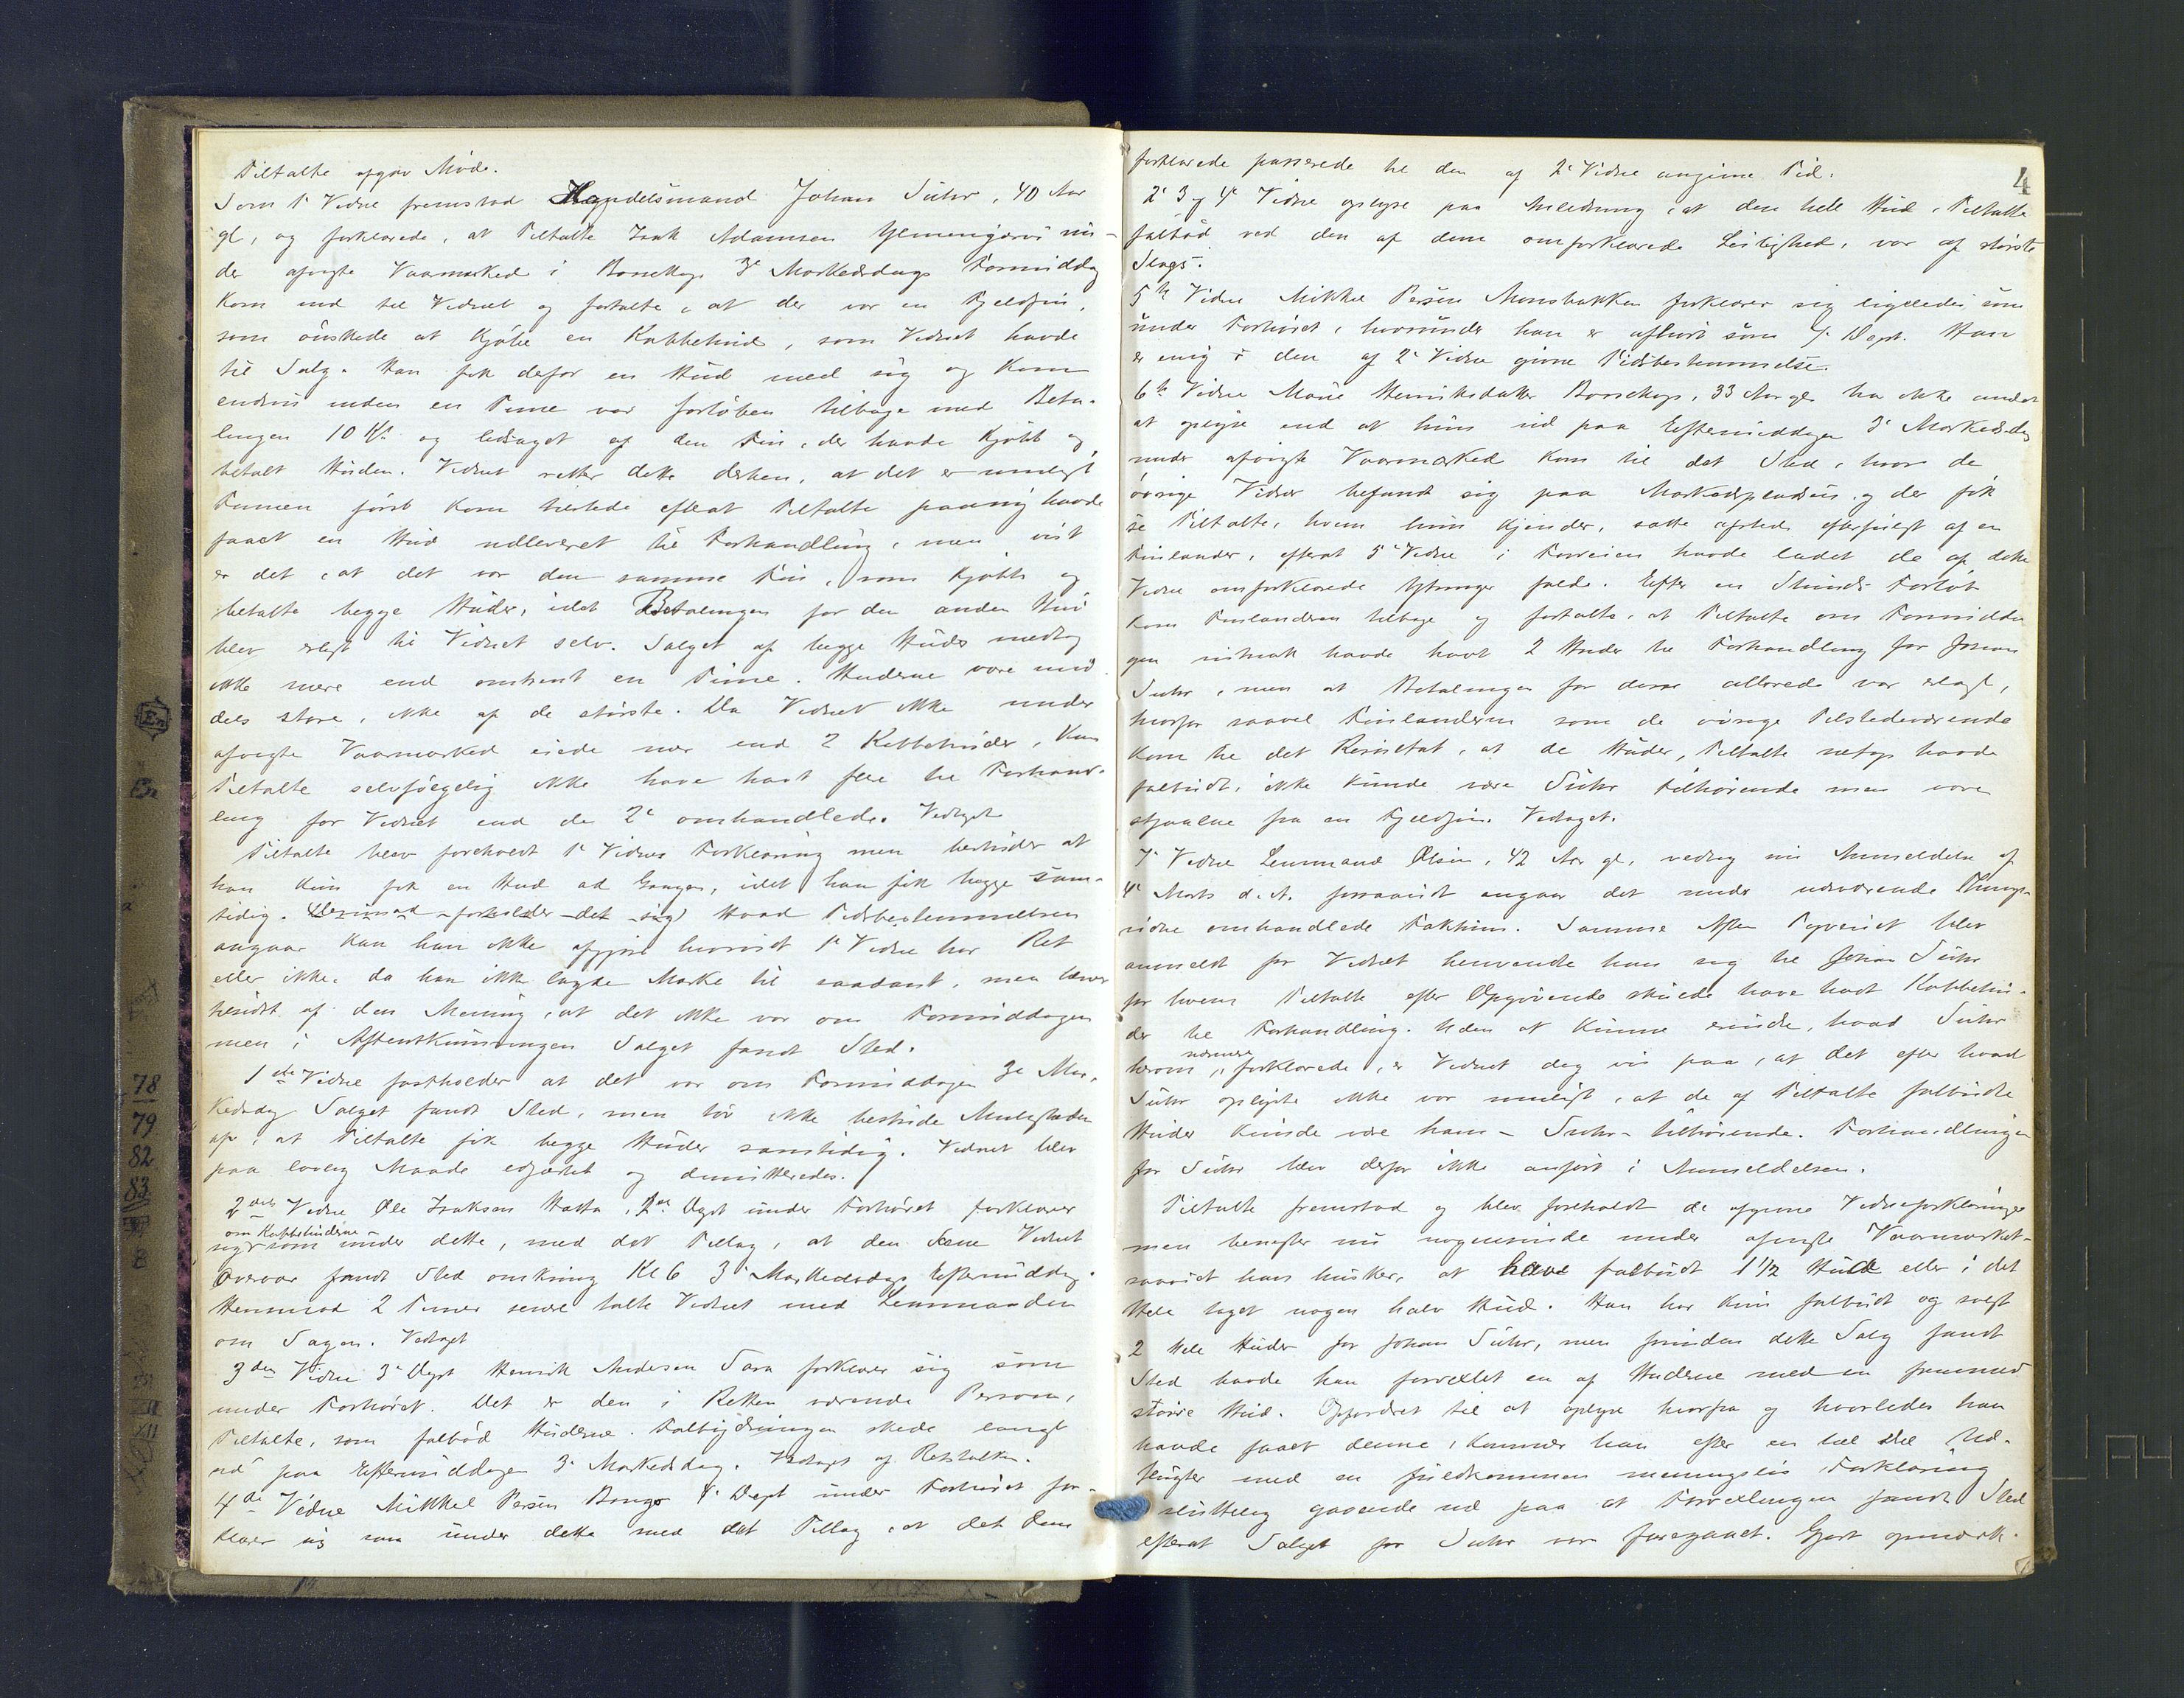 Tiltalte afgav Møde.
Som 1e Vidne fremstod Handelsmand Johan Suhr, 40 Aar
gl, og forklarede, at Tiltalte Isak Adamsen un-
der afvigte Vaarmarked i Bossekop 3e Markedsdags Formiddag
kom ind til Vidnet og fortalte, at der var en Fjeldfin,
som ønskede at kjøbe en Kobbehud, som Vidnet havde
til Salg. Han fik defor en Hud med sig og kom
endnu inden en Time var forløben tilbage med Beta-
lingen 10 Kr og ledsaget af den Fin, der havde kjøbt og
betalt Huden. Vidnet retter dette derhen, at det er muligt
Finnen først kom tilstede efterat Tiltalte paany havde
faaet en Hud udleveret til Forhandling, men vist
er det, at det var den samme Fin, som kjøbte og
betalte begge Huder, idet Betalingen for den anden Hud
blev erlagt til Vidnet selv. Salget af begge Huder medtog
ikke mere end omtrent en Time. Huderne vare mid
dels store, ikke af de største. Da Vidnet ikke under
afvigte Vaarmarked eiede mer end 2 Kobbehuder, kan
Tiltalte selvfølgelig ikke have havt flere til Forhand-
ling for Vidnet end de 2e omhandlede. Vedtaget
Tiltalte blev foreholdt 1e Vidnes Forklaring men bestrider at
han kun fik en Hud ad Gangen, idet han fik begge sam-
tidig. Derimod forholder det sig Hvad Tidsbestemmelsen
angaar kan han ikke afgjøre hvorvidt 1e Vidne har Ret
eller ikke, da han ikke lagde Mærke til saadant, men
af den Mening, at det ikke var om Formiddagen
men i Aftenskumringen Salget fandt Sted.
1ste Vidne fastholder at det var om Formiddagen 3e Mar-
kedsdag Salget fandt Sted, men tør ikke bestride Muligheden
af, at Tiltalte fik begge Huder samtidig. Vidnet blev
paa lovlig Maade edfæstet og dimitteredes.
2det Vidne Ole Isaksen Hatta, 2den Dept under Forhøret forklarer
om Kobbehuderne
sig som under dette, med det Tillæg, at den Scene Vidnet
overvar fandt Sted omkring Kl 6 3e Markedsdags Eftermiddag.
Henimod 2 Timer senere talte Vidnet med Lensmanden
om Sagen. Vedtaget
3die Vidne 3e Dept Henrik Andersen Sara forklarer sig som
under Forhøret. Det er den i Retten værende Person,
Tiltalte, som falbød Huderne. Falbydningen skede langt
ud paa Eftermiddagen 3e Markedsdag. Vedtaget af Retstolken.
4de Vidne Mikkel Persen Bongo 4e Dept under Forhøret for-
klarer sig som under dette med det Tillæg, at det dem
4
forklarede passerede til den af 2e Vidne angivne Tid.
2e 3 og 4e Vidne oplyse paa Anledning, at den hele Hud, Tiltalte
falbød ved den af dem omforklarede Leilighed, var af største
Slags.
5te Vidne Mikkel Persen Monsbakken forklarer sig ligeledes som
under Forhøret, hvorunder han er afhørt som Dept. Han
er enig i den af 2e Vidne givne Tidsbestemmelse.
6te Vidne Marie Henriksdatter Bossekop, 33 Aar gl har ikke andet
at oplyse end at hun ud paa Eftermiddagen 3e Markedsdag
under afvigte Vaarmarked kom til det Sted, hvor de
øvrige Vidner befandt sig paa Markedspladsen og der fik
se Tiltalte, hvem hun kjender, sætte afsted, efterfulgt af en
Finlænder, efterat 5e Vidne i Forveien havde ladet de af dette
Vidne omforklarede Ytringer falde. Efter en Stunds Forløb
kom Finlænderen tilbage og fortalte, at Tiltalte om Formidda
gen nitnok havde havt 2 Huder til Forhandling for Johan
Suhr, men at Betalingen for disse allerede var erlagt,
hvorfor saavel Finlænderen som de øvrige Tilstedeværende
kom til det Resultat, at de Huder, Tiltalte netop havde
falbudt, ikke kunde være Suhr tilhørende men være
stjaalne fra en Fjeldfin. Vedtaget.
7e Vidne Lensmand Olsen, 42 Aar gl, vedtog sin Anmeldelse af
4e Marts d. A. forsaavidt angaar det under nærværende Things-
vidne omhandlede Faktum. Samme Aften Tyveriet blev
anmeldt for Vidnet henvendte han sig til Johan Suhr
for hvem Tiltalte efter Opgivende skulde have havt Kobbehu-
der til Forhandling. Uden at kunne erindre, hvad Suhr
nærmere
herom forklarede, er Vidnet dog vis paa, at det efter hvad
Suhr oplyste ikke var muligt, at de af Tiltalte falbudte
Huder kunde være ham - Suhr - tilhørende. Forhandlingen
for Suhr blev derfor ikke anført i Anmeldelsen.
Tiltalte fremstod og blev foreholdt de afgivne Vidneforklaringer
men benegter nu nogensinde under afvigte Vaarmarked -
saavidt han husker, at have falbudt 1 1/2 Hud eller i det
Hele taget nogen halv Hud. Han har kun falbudt og solgt
2 hele Huder for Johan Suhr, men forinden dette Salg fandt
Sted havde han forvexlet en af Huderne med en fremmed
større Hud. Opfordret til at oplyse hvorfra og hvorledes han
havde faaet denne, kommer han efter en hel Del Ud-
flugter med en fuldkommen meningsløs Forklaring
sluttelig gaaende ud paa at Forvexlingen fandt Sted
efterat Salget for Suhr var foregaaet. Gjort opmærk-
78
79
82
83